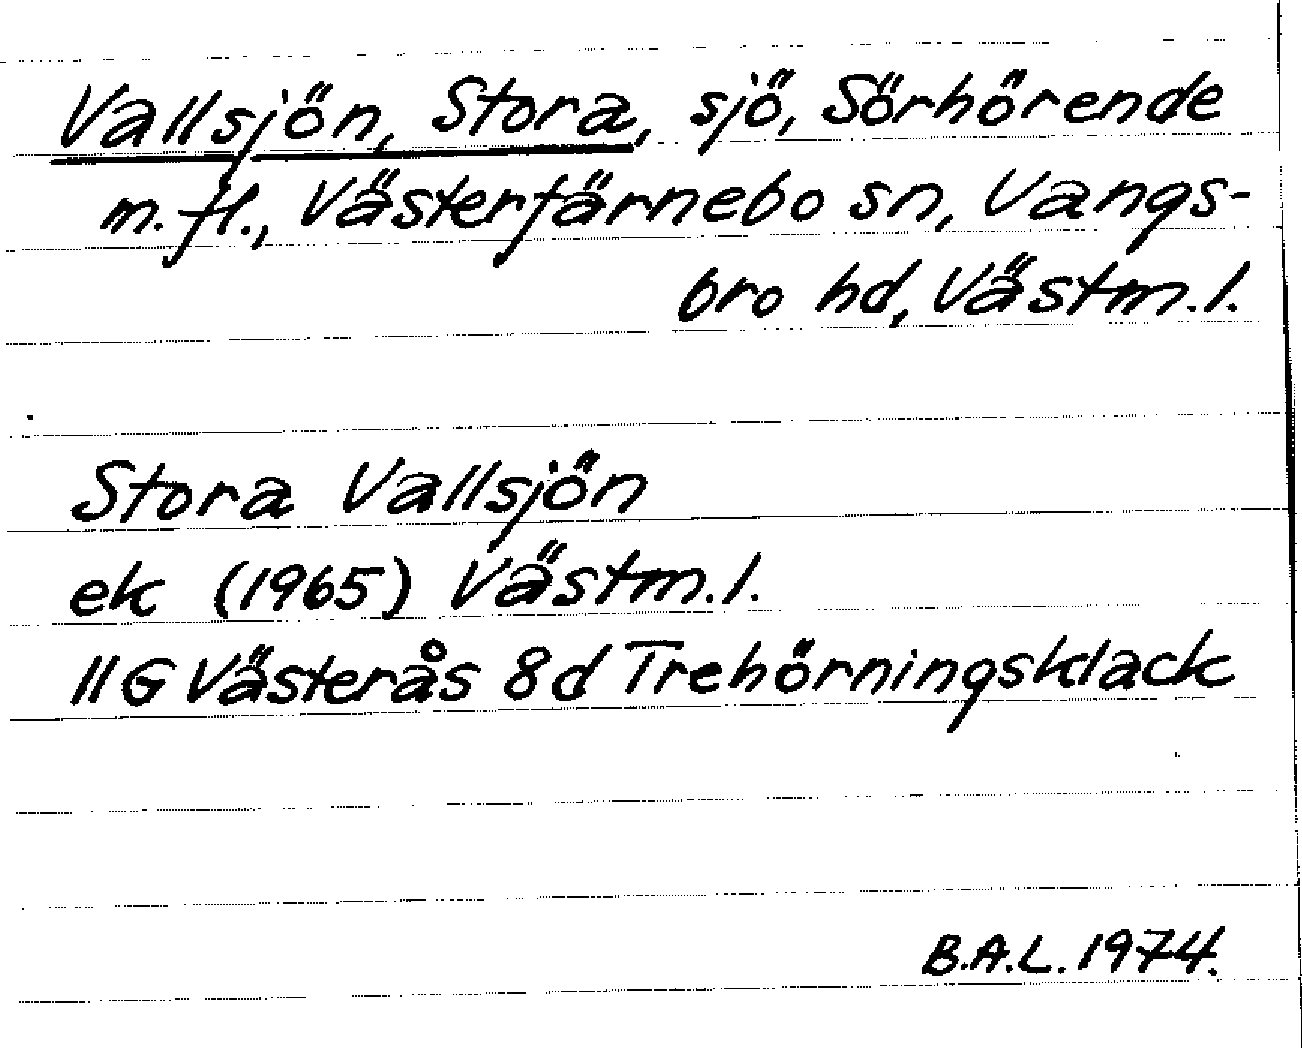 Vallsjön, Stora, sjö, Sörhörende
m. fl., Västerfärnebo sn, Vangs-
bro hd, Västm. l.
Stora Vallsjön
ek (1965) Västm. l.
11G Västerås 8d Trehörningsklack
B.A.L. 1974.